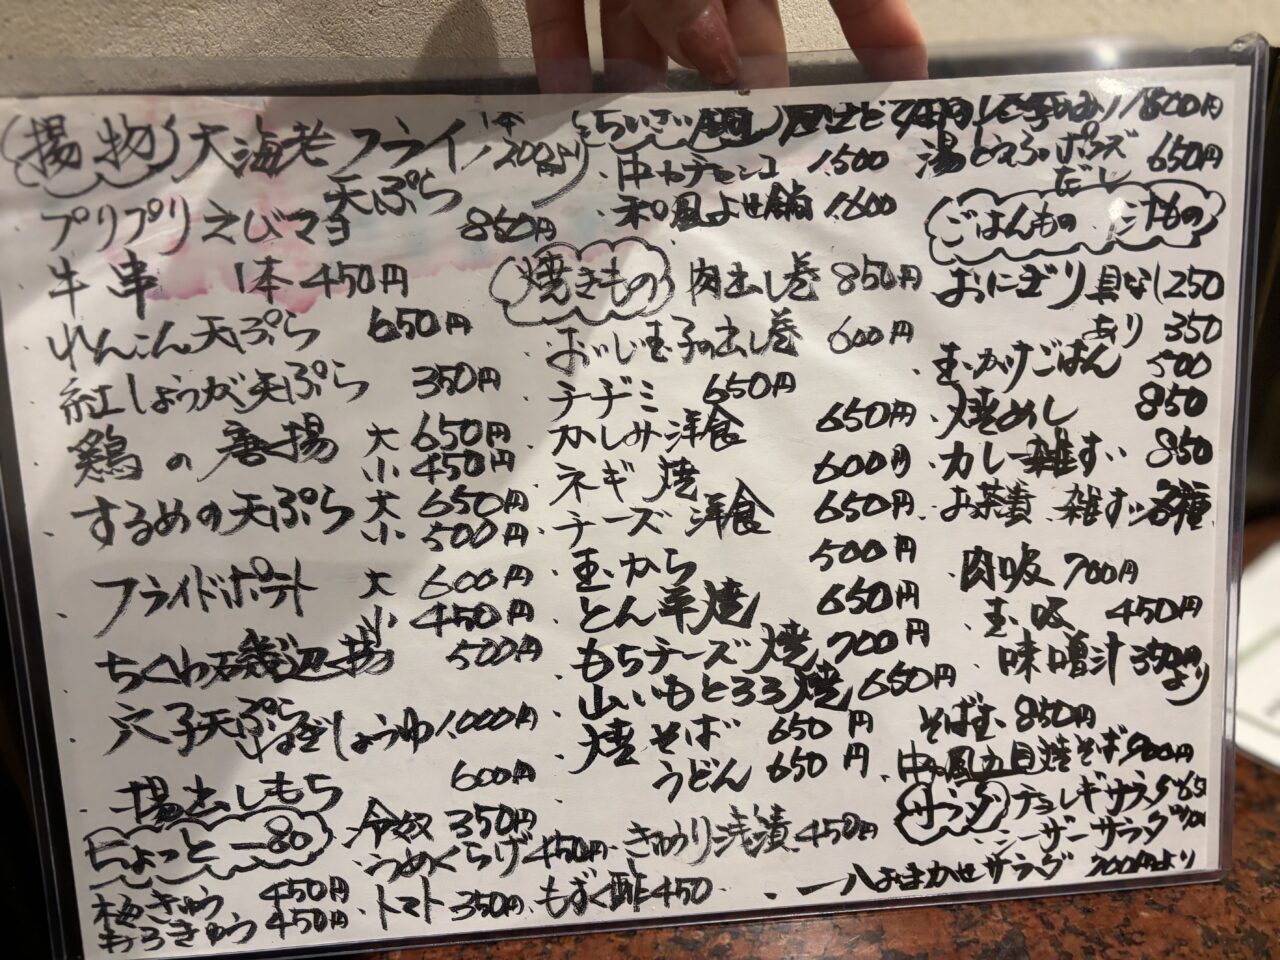 揚物
大海老フライ 1本 1200円
天ぷら
プリプリえびマヨ 860円
牛串 1本450円
れんこん天ぷら 650円
紅しょうが天ぷら 350円
鶏の唐揚 大650円
小450円
するめの天ぷら 大650円
小500円
フライドポテト 大600円
小450円
ちくわ磯辺揚 500円
穴子天ぷら
ねぎしょうゆ 1000円
揚出しもち 600円
ちょっと一品
梅きゅう 450円
もろきゅう 450円
冷奴 350円
うめくらげ 450円
トマト 350円
きゅうり浅漬 450円
もずく酢 450
ちいさい鍋
1800円
中華チャンコ 1500
和風よせ鍋 1600
湯どうふ ポンズ 650円
だし
焼きもの
肉出し巻 850円
おいじ玉子の出し巻 600円
チヂミ 650円
かしみ洋食 650円
ネギ焼 600円
チーズ洋食 650円
玉から 500円
とん平焼 650円
もちチーズ焼 700円
山いもとろろ焼 650円
焼そば 650円
うどん 650円
ごはんもの 汁もの
おにぎり 具なし250
あり 350
玉かけごはん 500
焼めし 850
カレー雑すい 850
お茶漬 雑すい各種
肉吸 700円
玉吸 450円
味噌汁 350円より
そば玉 850円
中風五目焼そば 900円
サラダ
チョレギサラダ
シーザーサラダ
一八おまかせサラダ 700円より